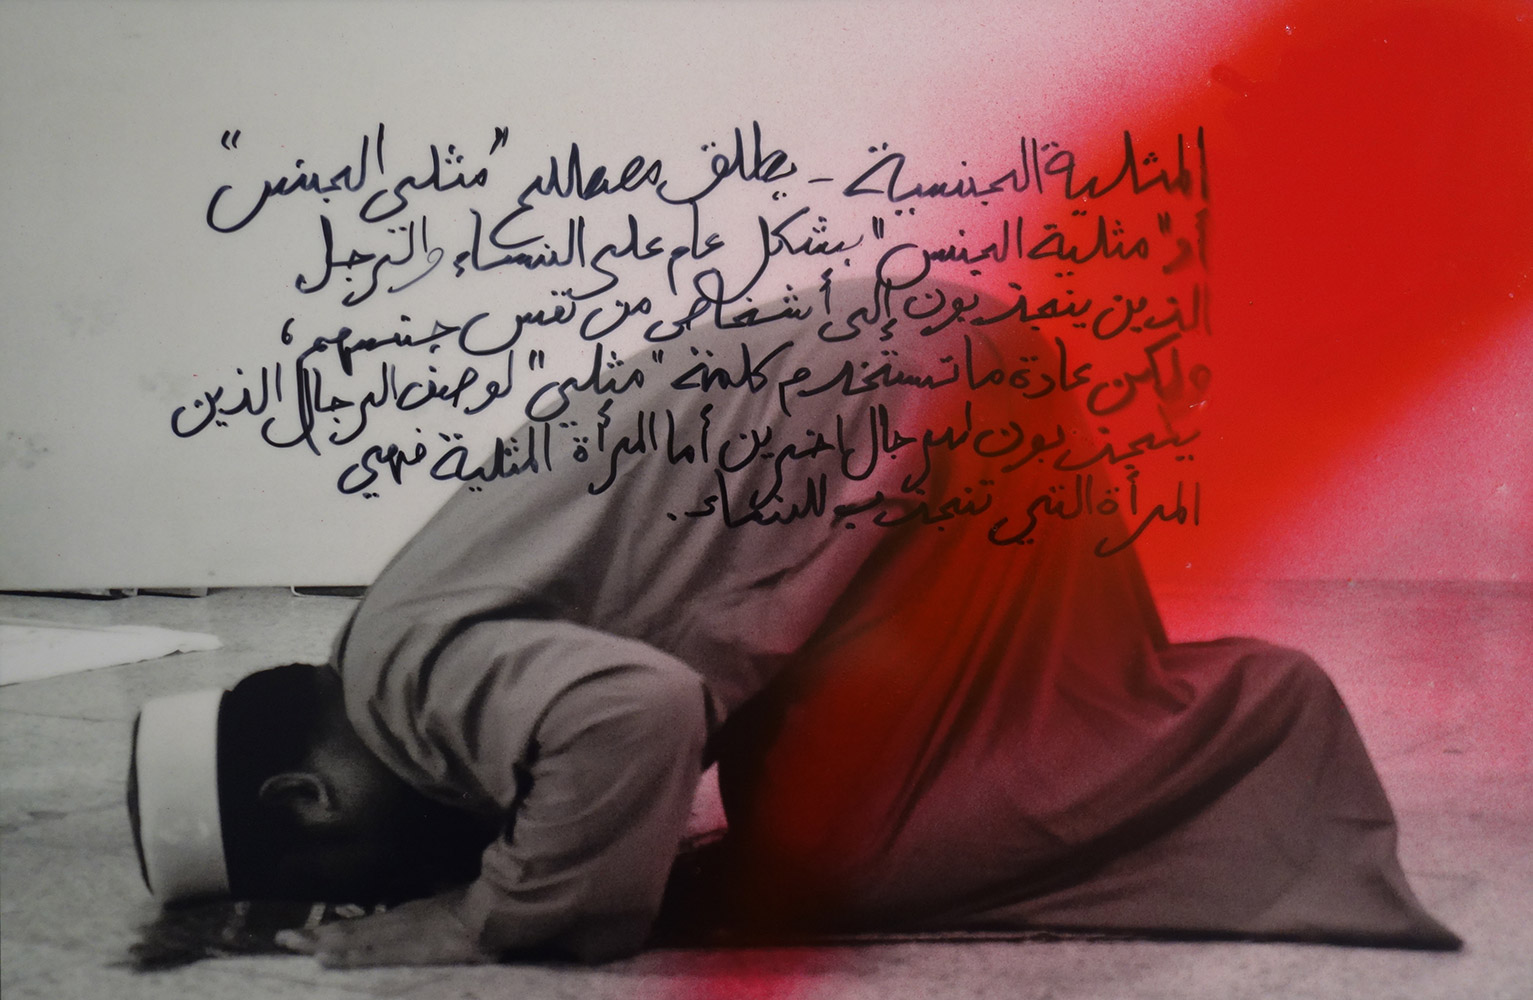 المثلية الجنسية - يطلق مصطلح "مثلي الجنس"
أو "مثلية الجنس" بشكل عام على النساء والرجل
الذين ينجذبون إلى أشخاص من نفس جنسهم،
ولكن عادة ما تستخدم كلمة "مثلي" لوصف الرجال الذين
ينجذبون للرجال اخرين أما المرأة المثلية فهي
المرأة التي تنجذب للنساء.